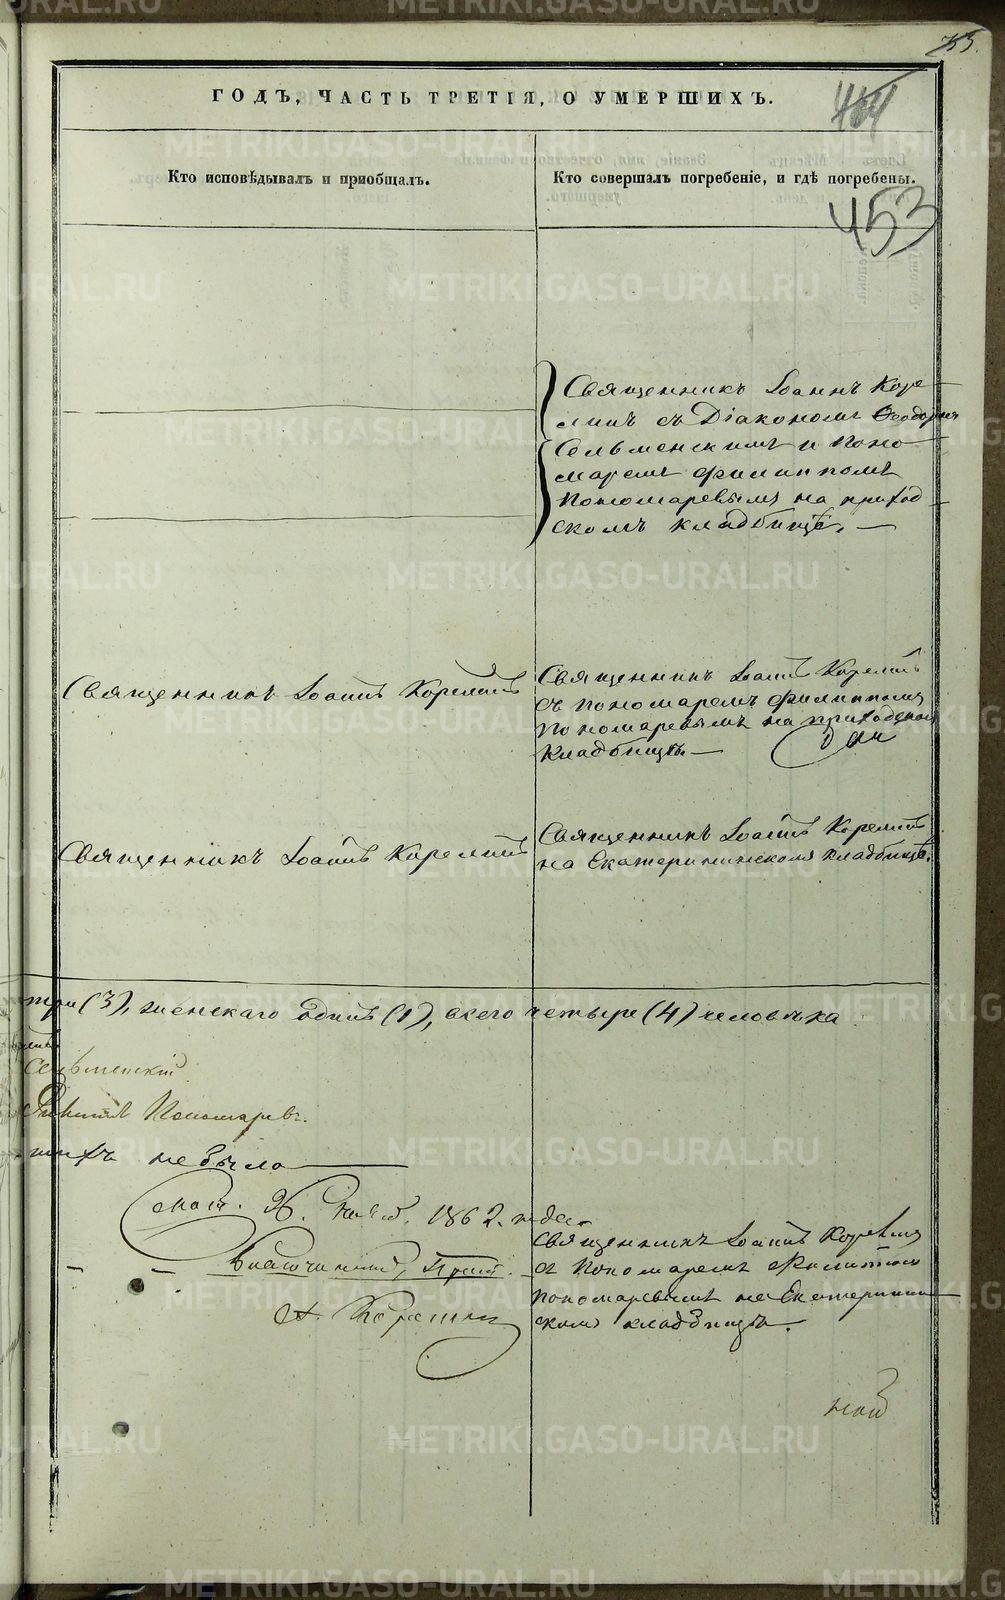 ГОДЪ, ЧАСТЬ ТРЕТІЯ, О УМЕРШИХЪ.
453
Кто исповѣдывалъ и пріобщалъ.
Кто совершалъ погребеніе, и гдѣ погребены.
Священникъ Іоаннъ Коре-
линъ съ Діакономъ Ѳеодоромъ
Сельменскимъ и Поно-
маремъ Филиппомъ
Пономаревымъ на приход-
скомъ кладбищѣ. —
Священникъ Іоаннъ Корелинъ
Священникъ Іоаннъ Корелинъ
съ пономаремъ Филиппомъ
Пономаревымъ на приходскомъ
кладбищѣ —
Священникъ Іоаннъ Корелинъ
Священникъ Іоаннъ Корелинъ
на Екатерининскомъ кладбищѣ.
три (3), женскаго одинъ (1), всего четыре (4) человѣка
Сельменскій
Филиппъ Пономаревъ.
не было
1862. года
Священникъ Іоаннъ Корелинъ
съ Пономаремъ Филиппомъ
Пономаревымъ на Екатеринин-
скомъ кладбищѣ.
METRIKI.GASO-URAL.RU